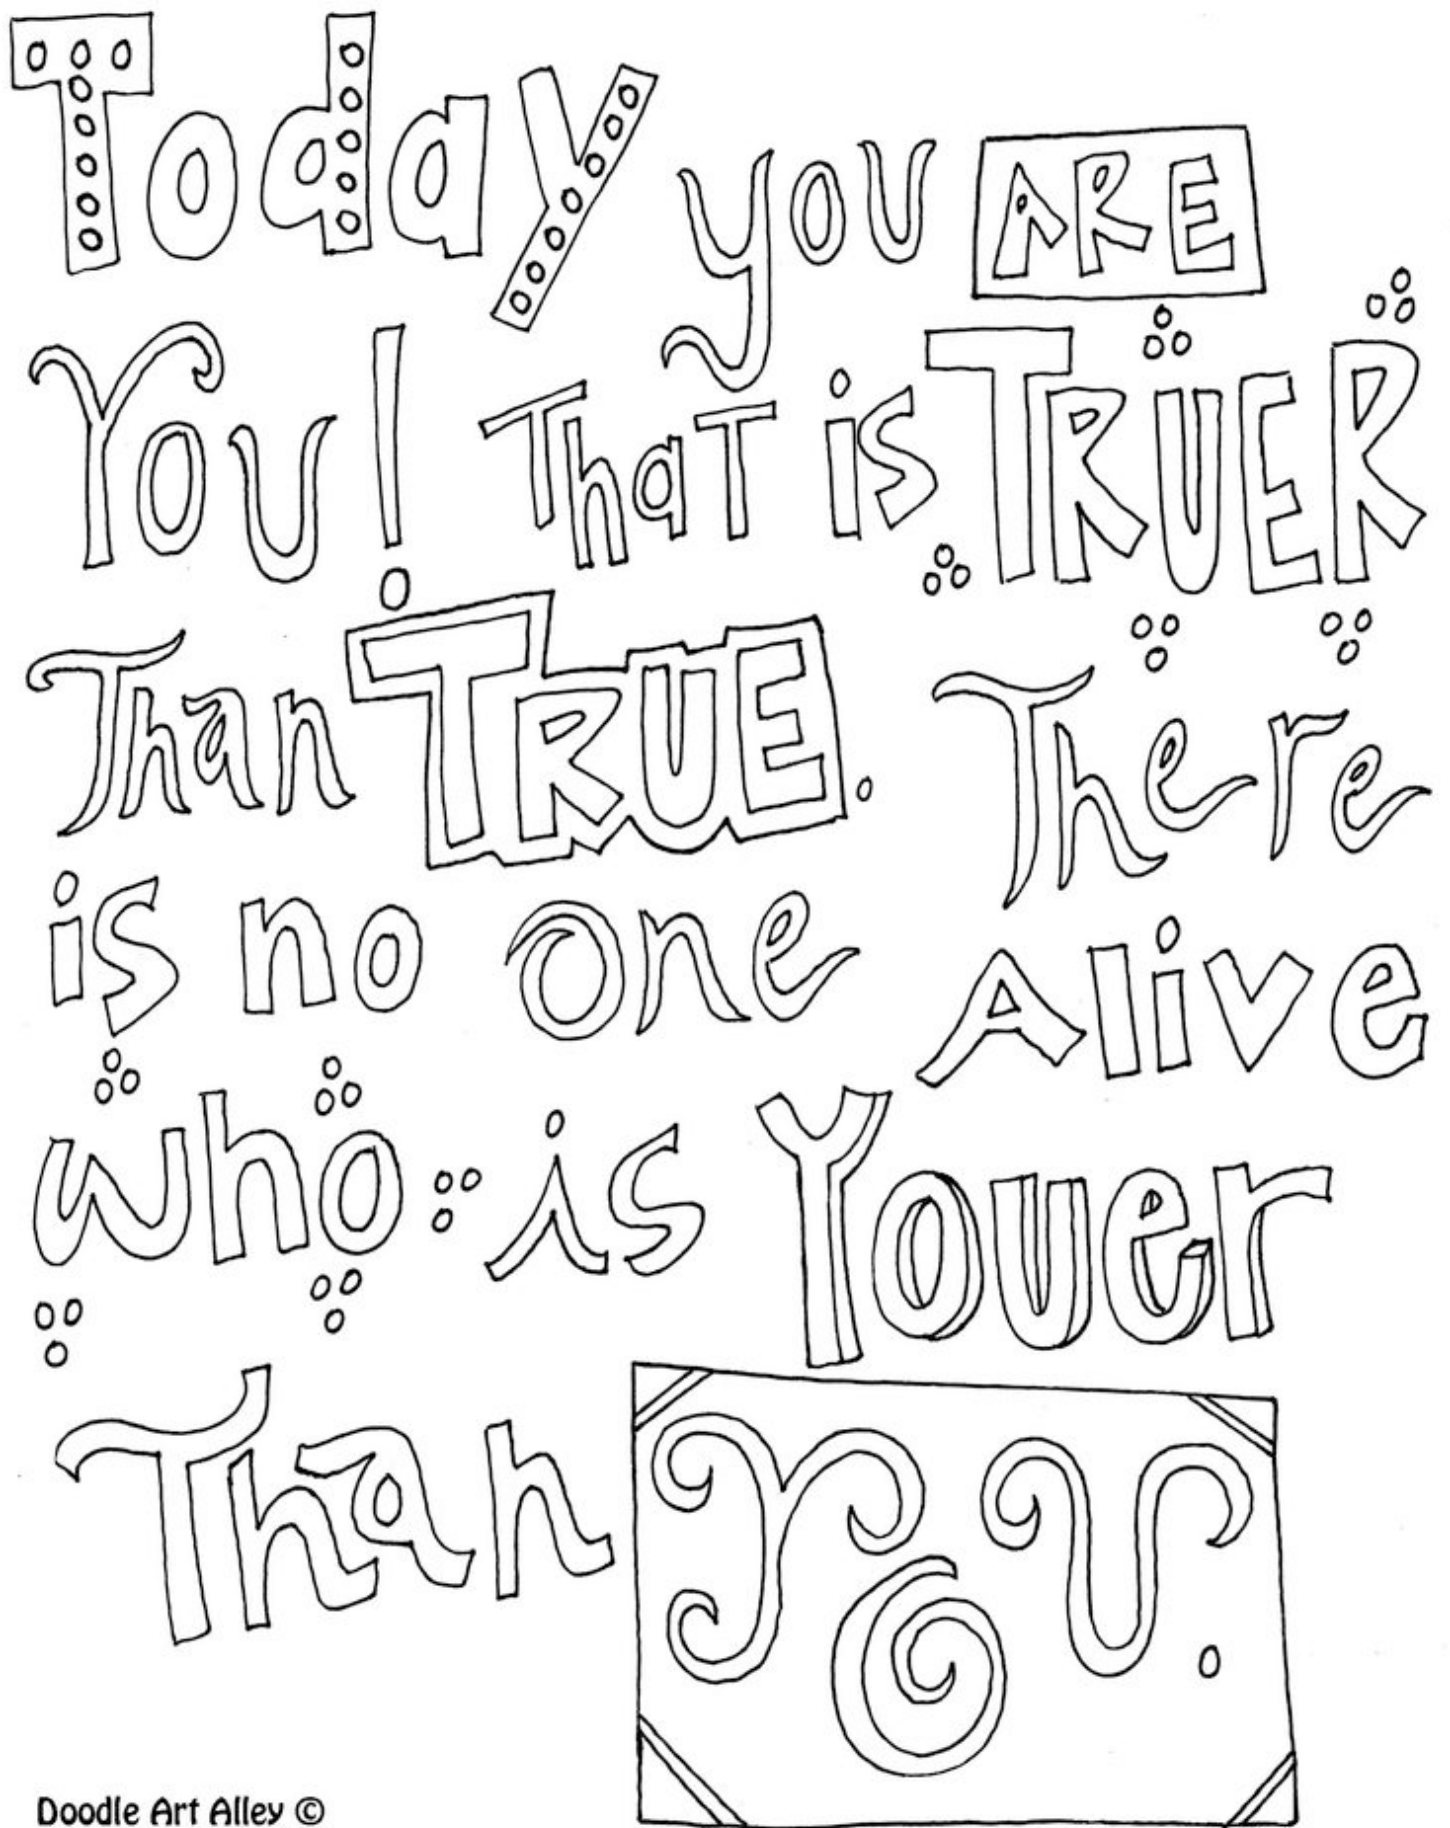 Today you ARE
You! That is TRUER
Than TRUE. There
is no one Alive
who is Youer
Than YOU.
Doodle Art Alley ©